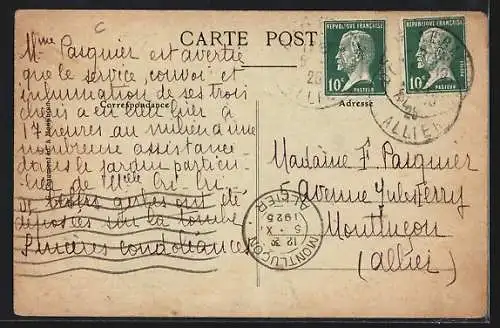 CARTE POST
Correspondance
Adresse
Mme Pasquier est avertie
que le service convoi et
inhumation de ses trois
a eu lieu hier à
17 heures au milieu d'une
nombreuse assistance
dans le jardin particu-
lier de Melle Cri-Cri.
trois gerbes ont été
déposées sur la tombe
Sincères condoléances
REPUBLIQUE FRANÇAISE
10c
PASTEUR
REPUBLIQUE FRANÇAISE
10c
PASTEUR
ALLIER
Madame F. Pasquier
5 Avenue Jules Ferry
Montluçon
(Allier)
MONTLUÇON
12 30
5 - X
1925
ALLIER